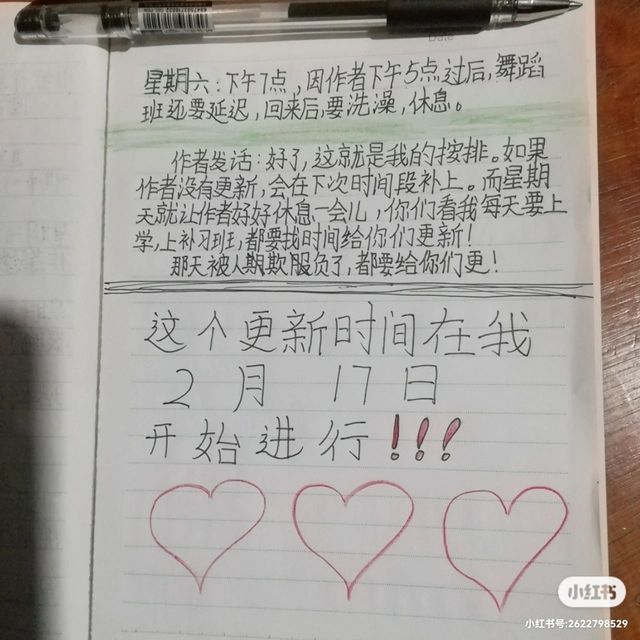 星期六：下午7点，因作者下午5点过后，舞蹈
班还要延迟，回来后要洗澡，休息。
作者发话：好了，这就是我的按排。如果
作者没有更新，会在下次时间段补上。而星期
天就让作者好好休息一会儿，你们看我每天要上
学，上补习班，都要找时间给你们更新！
那天被人期欺服负了，都要给你们更！
这个更新时间在我
2月17日
开始进行！！！
小红书
小红书号:2622798529